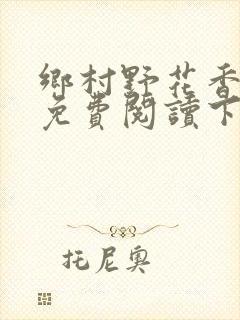 鄉村野花香
免費閱讀下
托尼奧